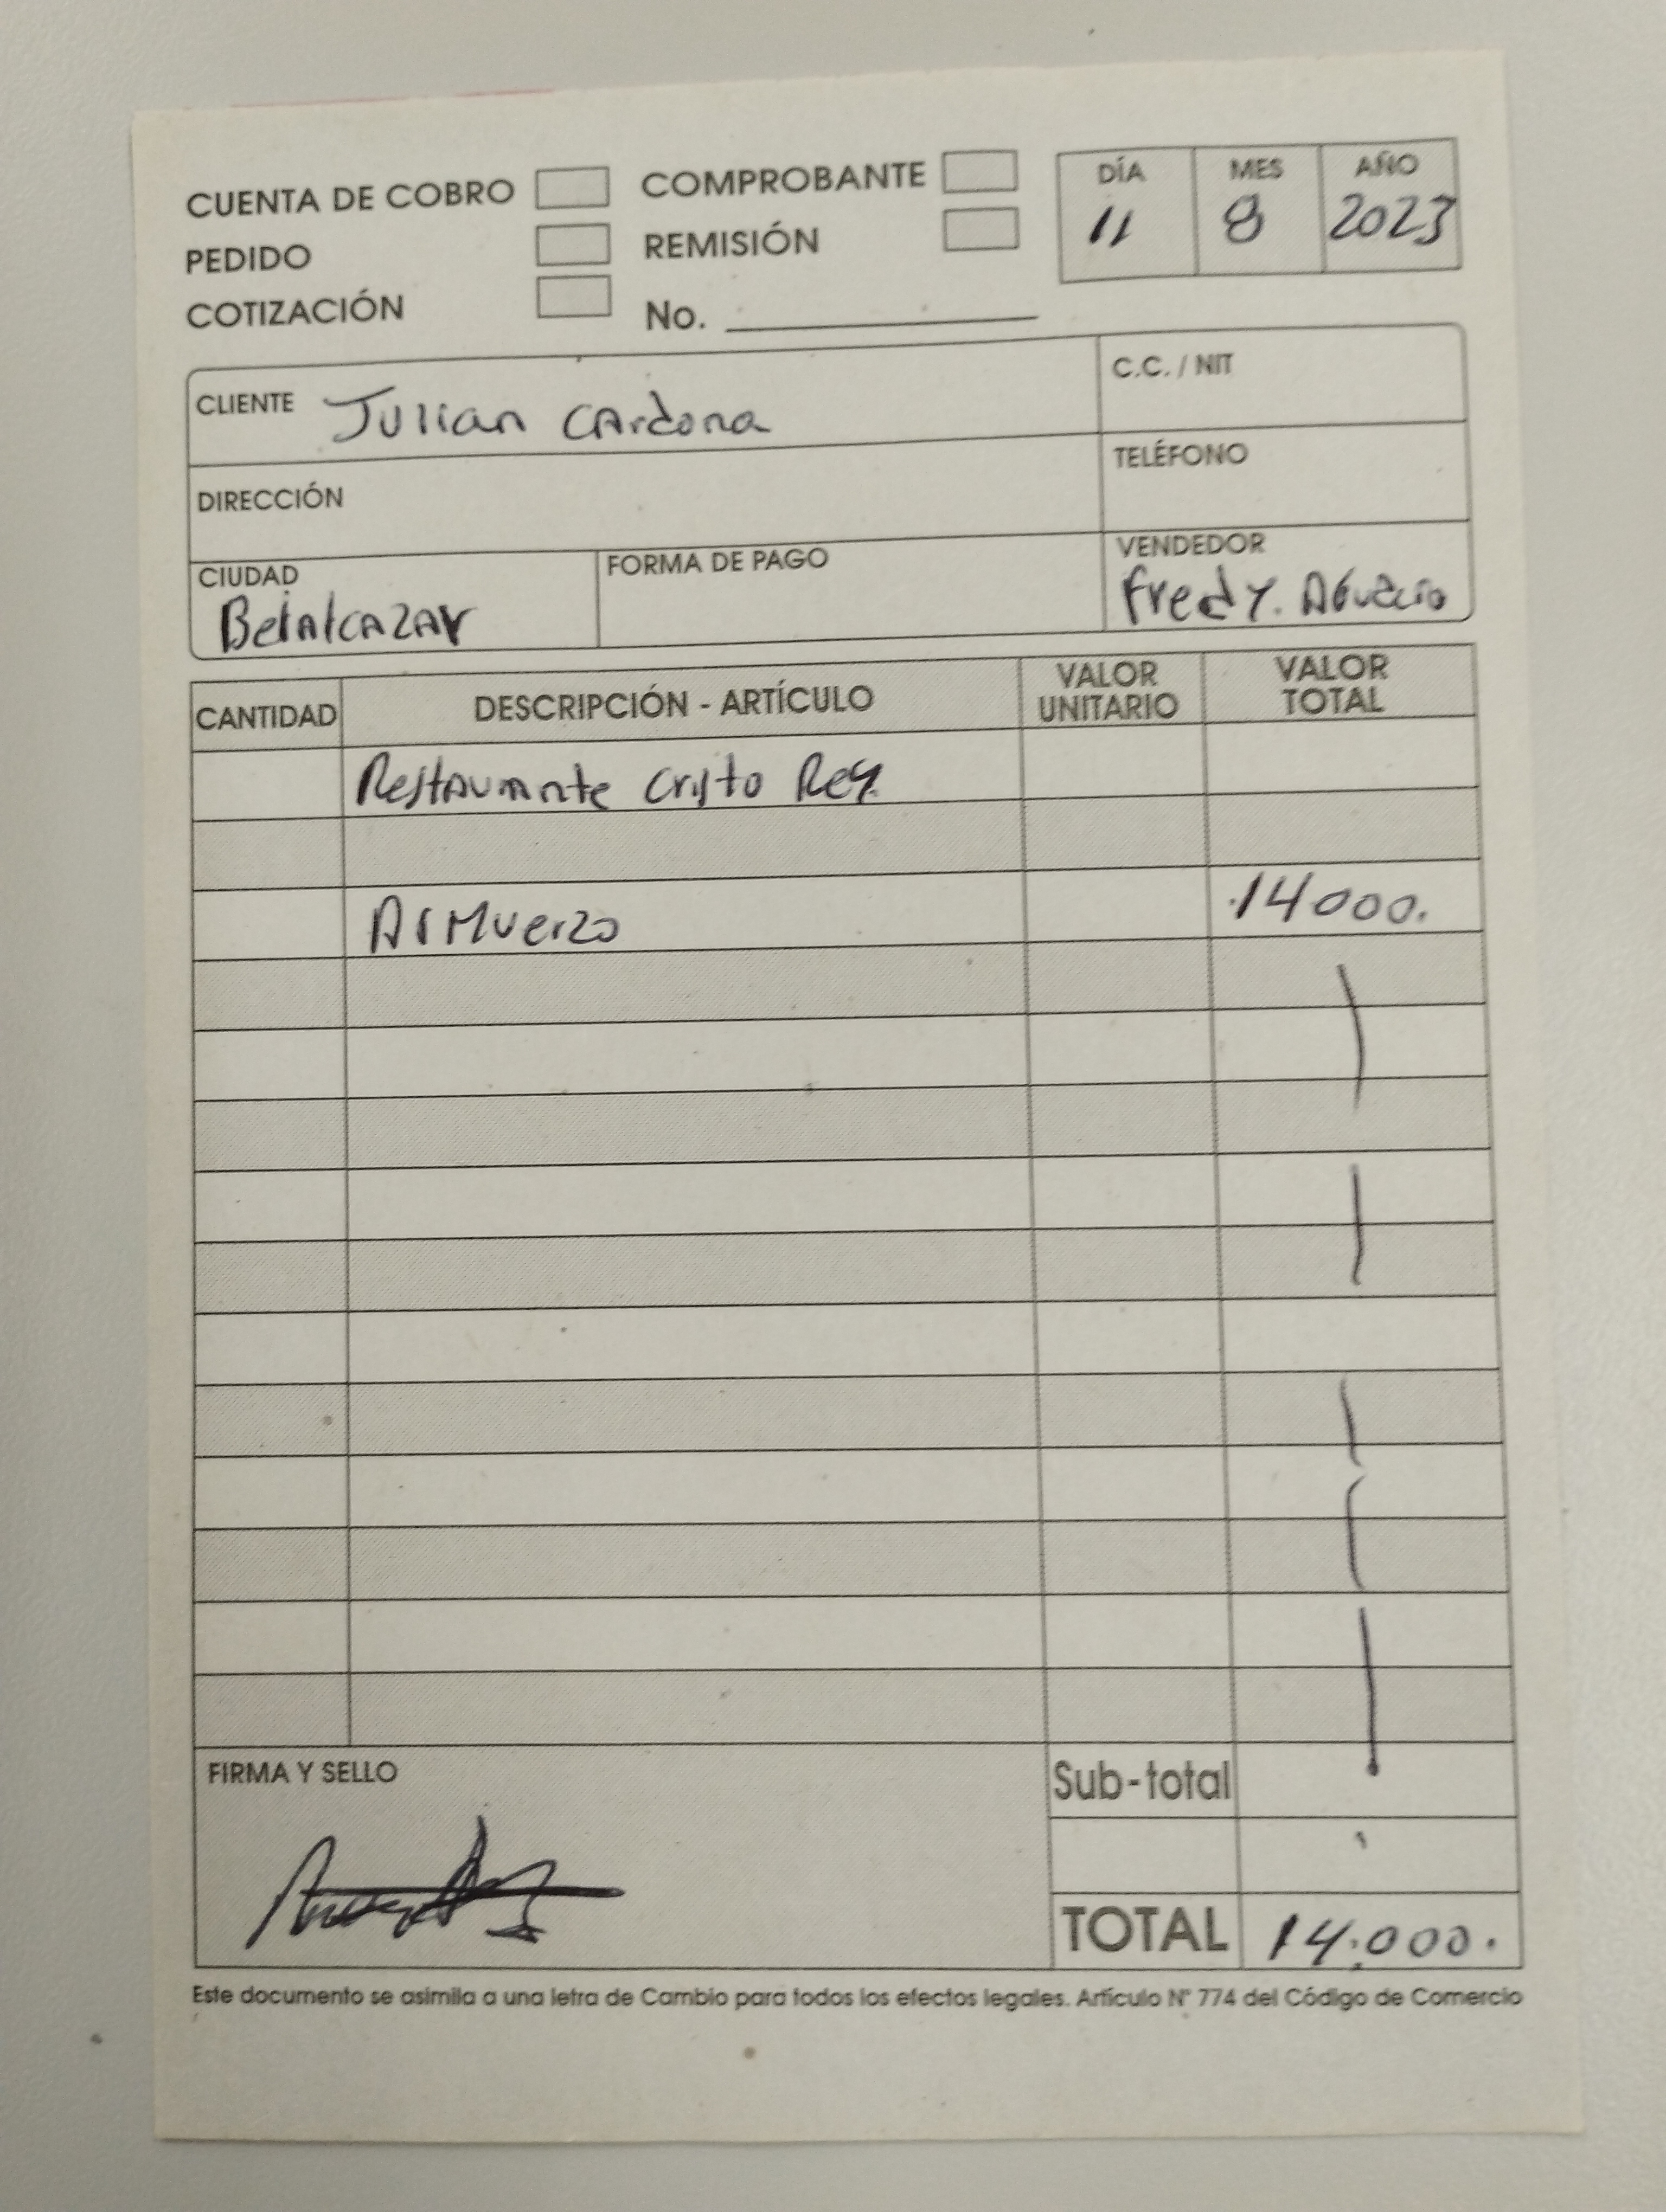 CUENTA DE COBRO COMPROBANTE DÍA MES AÑO
PEDIDO REMISIÓN 11 8 2023
COTIZACIÓN No.
CLIENTE Julian Cardona C.C. / NIT
DIRECCIÓN TELÉFONO
CIUDAD FORMA DE PAGO VENDEDOR
Belalcazar Fredy.
CANTIDAD DESCRIPCIÓN - ARTÍCULO VALOR UNITARIO VALOR TOTAL
Restaurante Cristo Rey.
Almuerzo 14000.
FIRMA Y SELLO Sub-total
TOTAL 14.000.
Este documento se asimila a una letra de Cambio para todos los efectos legales. Artículo N° 774 del Código de Comercio